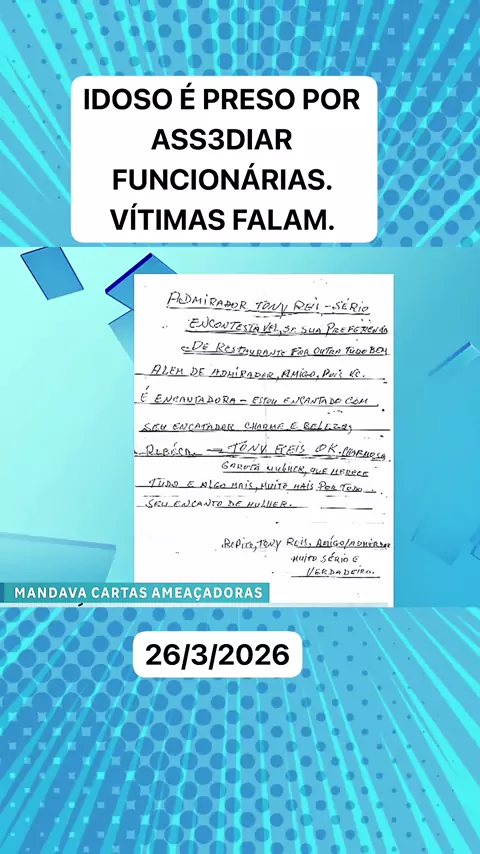 IDOSO É PRESO POR
ASS3DIAR
FUNCIONÁRIAS.
VÍTIMAS FALAM.
ADMIRADOR TONY REIS - SÉRIO
ENCONTESTAVEL, SE SUA PREFERENCIA
DE RESTAURANTE FOR OUTRA TUDO BEM
ALEM DE ADMIRADOR, AMIGO, POIS VC.
É ENCANTADORA - ESTOU ENCANTADO COM
SEU ENCATADOR CHARME E BELEZA,
REBÉCA. TONY REIS OK. CHARMOSA
GAROTA MULHER, QUE MERECE
TUDO E ALGO MAIS, MUITO MAIS POR TODO
SEU ENCANTO DE MULHER.
REPITO, TONY REIS, AMIGO/ADMIRADOR
MUITO SÉRIO E
VERDADEIRO.
MANDAVA CARTAS AMEAÇADORAS
26/3/2026